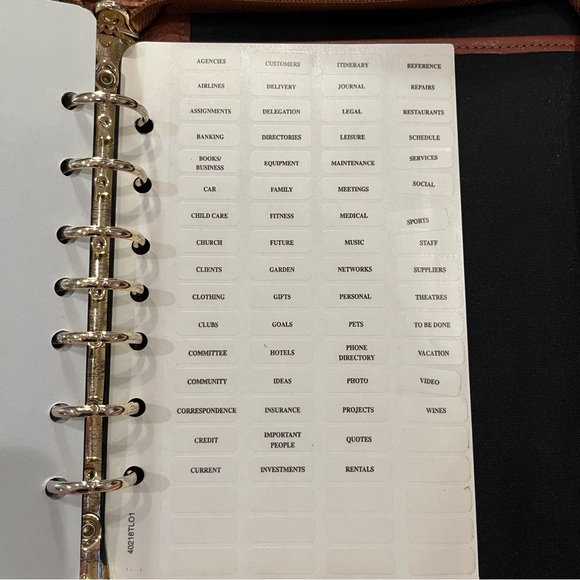 AGENCIES CUSTOMERS ITINERARY REFERENCE
AIRLINES DELIVERY JOURNAL REPAIRS
ASSIGNMENTS DELEGATION LEGAL RESTAURANTS
BANKING DIRECTORIES LEISURE SCHEDULE
BOOKS/
BUSINESS EQUIPMENT MAINTENANCE SERVICES
CAR FAMILY MEETINGS SOCIAL
CHILD CARE FITNESS MEDICAL SPORTS
CHURCH FUTURE MUSIC STAFF
CLIENTS GARDEN NETWORKS SUPPLIERS
CLOTHING GIFTS PERSONAL THEATRES
CLUBS GOALS PETS TO BE DONE
COMMITTEE HOTELS PHONE
DIRECTORY VACATION
COMMUNITY IDEAS PHOTO VIDEO
CORRESPONDENCE INSURANCE PROJECTS WINES
CREDIT IMPORTANT
PEOPLE QUOTES
CURRENT INVESTMENTS RENTALS
40218TLO1